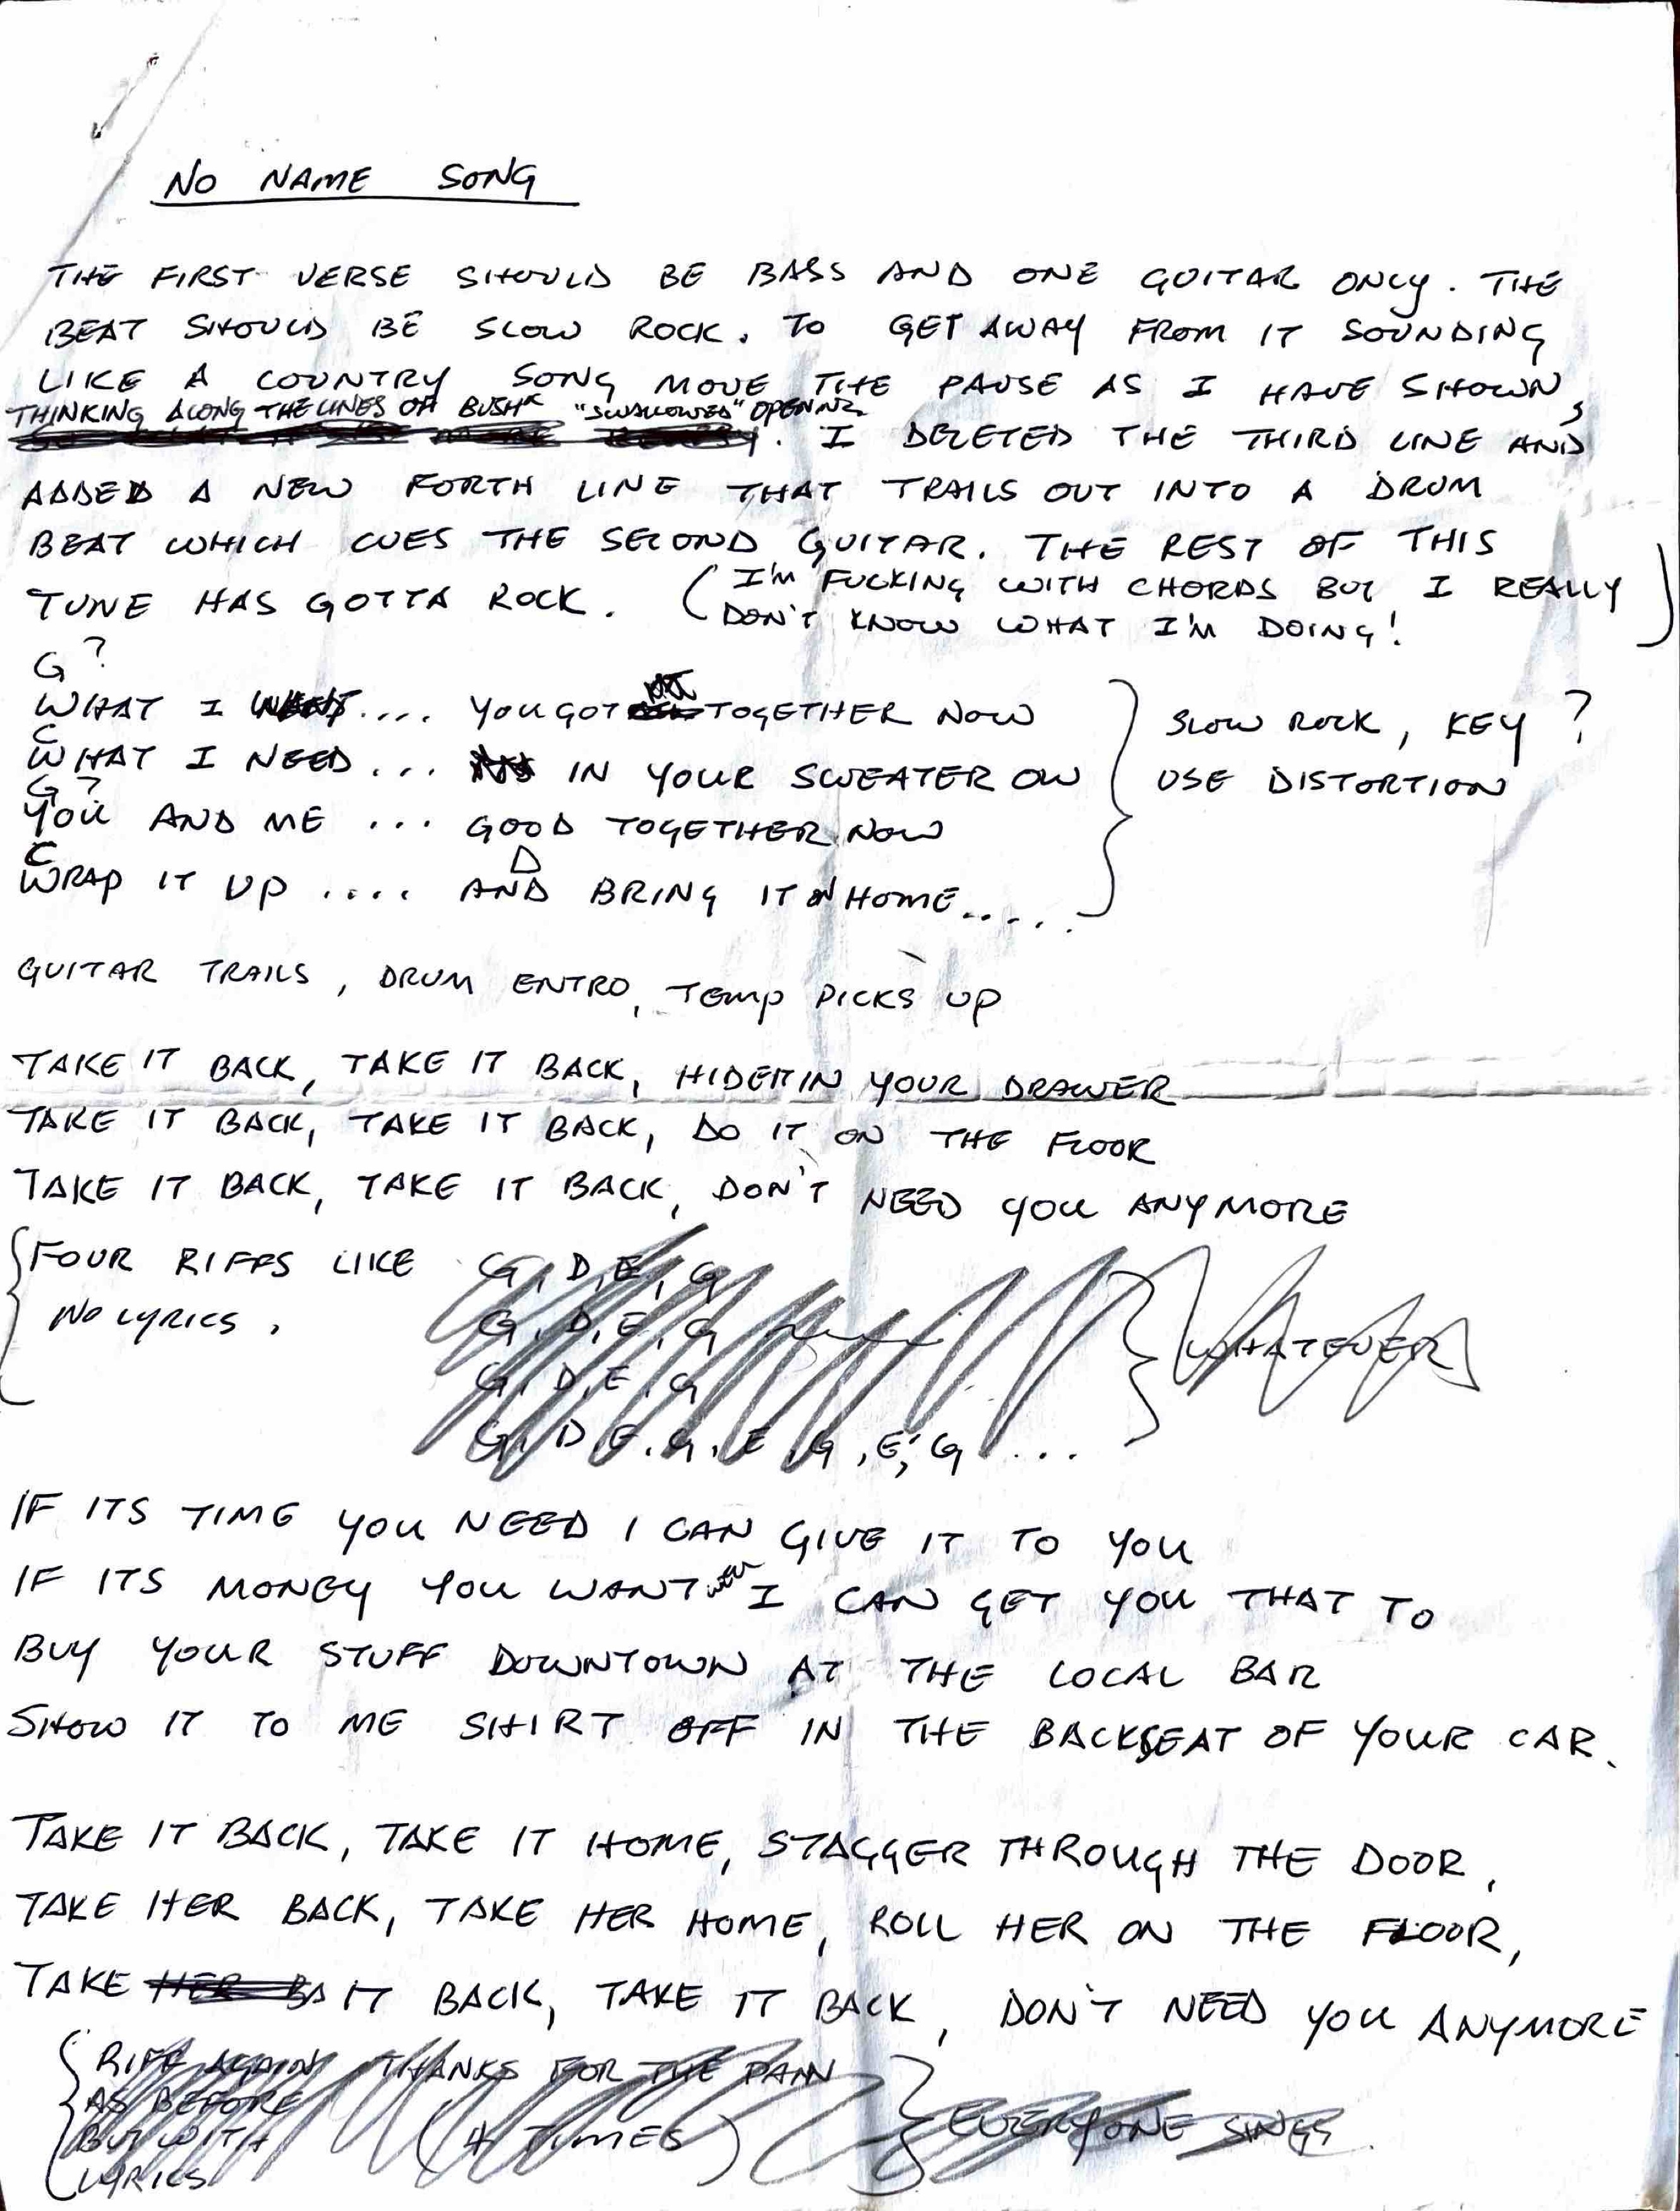 NO NAME SONG
THE FIRST VERSE SHOULD BE BASS AND ONE GUITAR ONLY. THE
BEAT SHOULD BE SLOW ROCK. TO GET AWAY FROM IT SOUNDING
LIKE A COUNTRY SONG MOVE THE PAUSE AS I HAVE SHOWN,
THINKING ALONG THE LINES OF BUSH "SWALLOWED" OPENING
. I DELETED THE THIRD LINE AND
ADDED A NEW FORTH LINE THAT TRAILS OUT INTO A DRUM
BEAT WHICH CUES THE SECOND GUITAR. THE REST OF THIS
TUNE HAS GOTTA ROCK. (I'M FUCKING WITH CHORDS BUT I REALLY
DON'T KNOW WHAT I'M DOING!)
G?
WHAT I WANT.... YOU GOT TOGETHER NOW
C
WHAT I NEED... IN YOUR SWEATER ON
G?
YOU AND ME ... GOOD TOGETHER NOW
C D
WRAP IT UP .... AND BRING IT ON HOME.....
SLOW ROCK, KEY?
USE DISTORTION
GUITAR TRAILS, DRUM ENTRO, TEMP PICKS UP
TAKE IT BACK, TAKE IT BACK, HIDEM IN YOUR DRAWER
TAKE IT BACK, TAKE IT BACK, DO IT ON THE FLOOR
TAKE IT BACK, TAKE IT BACK, DON'T NEED YOU ANYMORE
FOUR RIFFS LIKE G, D, E, G
NO LYRICS. G, D, E, G
G, D, E, G
G, D, E, G, E, G, E, G ...
WHATEVER
IF ITS TIME YOU NEED I CAN GIVE IT TO YOU
IF ITS MONEY YOU WANT WELL I CAN GET YOU THAT TO
BUY YOUR STUFF DOWNTOWN AT THE LOCAL BAR
SHOW IT TO ME SHIRT OFF IN THE BACKSEAT OF YOUR CAR.
TAKE IT BACK, TAKE IT HOME, STAGGER THROUGH THE DOOR,
TAKE HER BACK, TAKE HER HOME, ROLL HER ON THE FLOOR,
TAKE HER BA IT BACK, TAKE IT BACK, DON'T NEED YOU ANYMORE
RIFF AGAIN THANKS FOR THE PAIN
AS BEFORE
BUT WITH (4 TIMES)
LYRICS
EVERYONE SINGS.